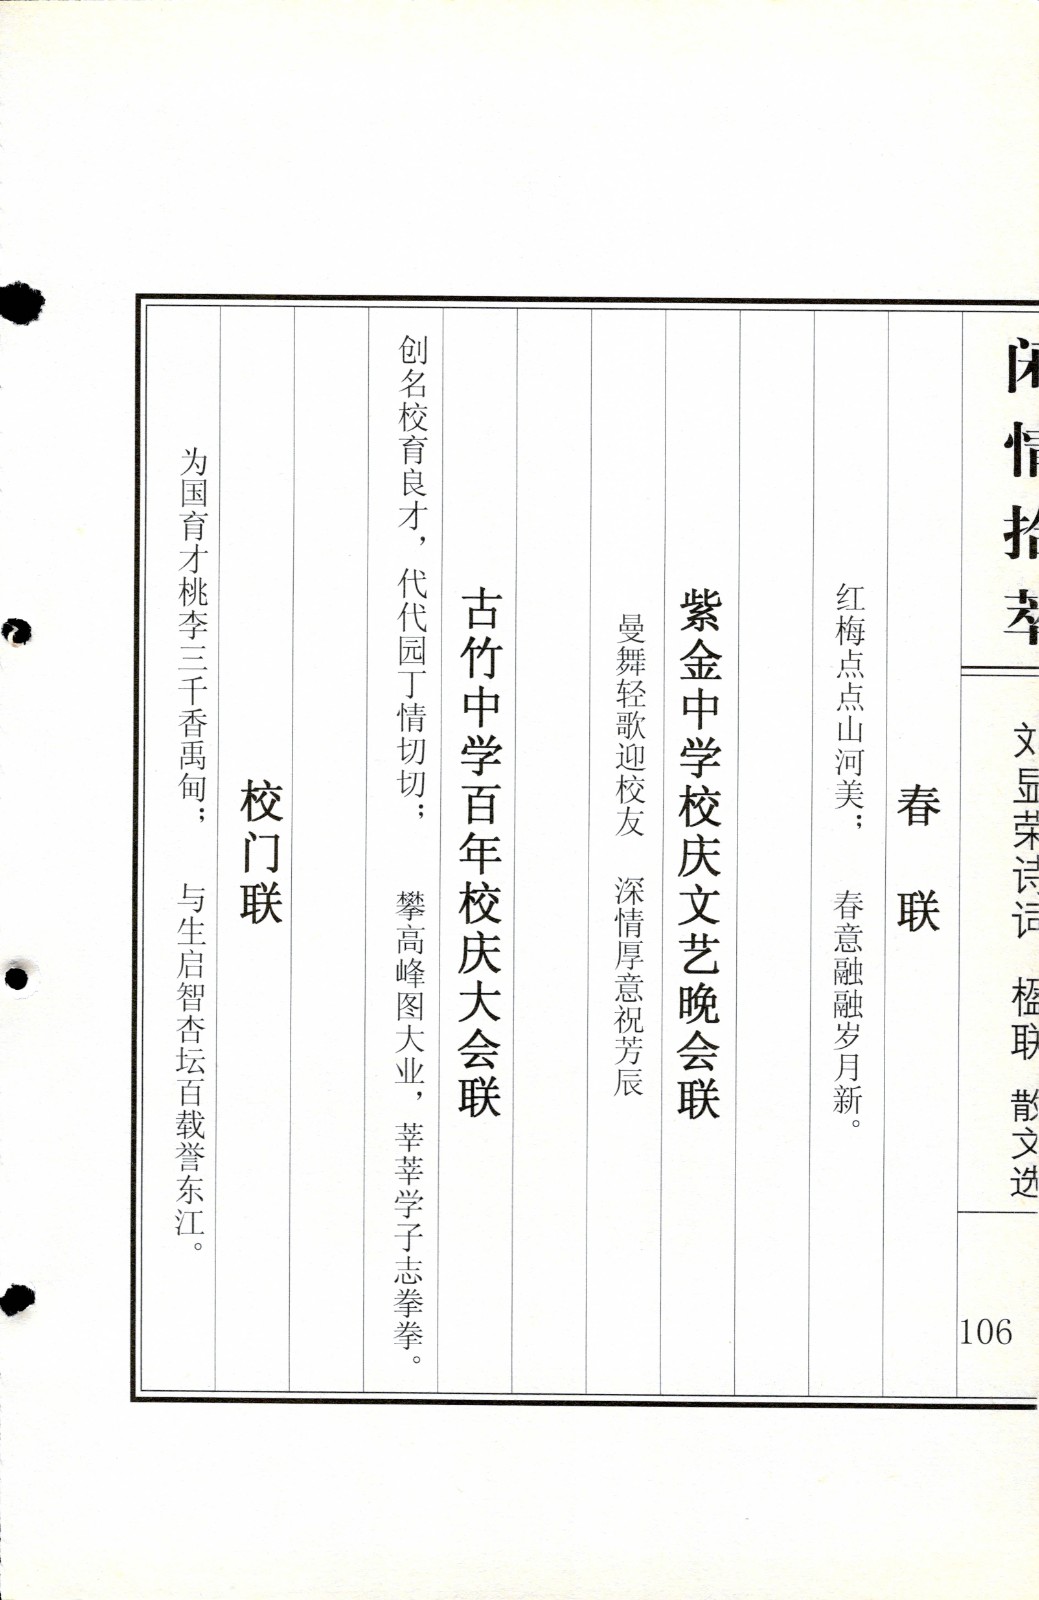 闲情拾萃
刘显荣诗词 楹联 散文选
106
春联
红梅点点山河美； 春意融融岁月新。
紫金中学校庆文艺晚会联
曼舞轻歌迎校友 深情厚意祝芳辰
古竹中学百年校庆大会联
创名校育良才，代代园丁情切切； 攀高峰图大业，莘莘学子志拳拳。
校门联
为国育才桃李三千香禹甸； 与生启智杏坛百载誉东江。